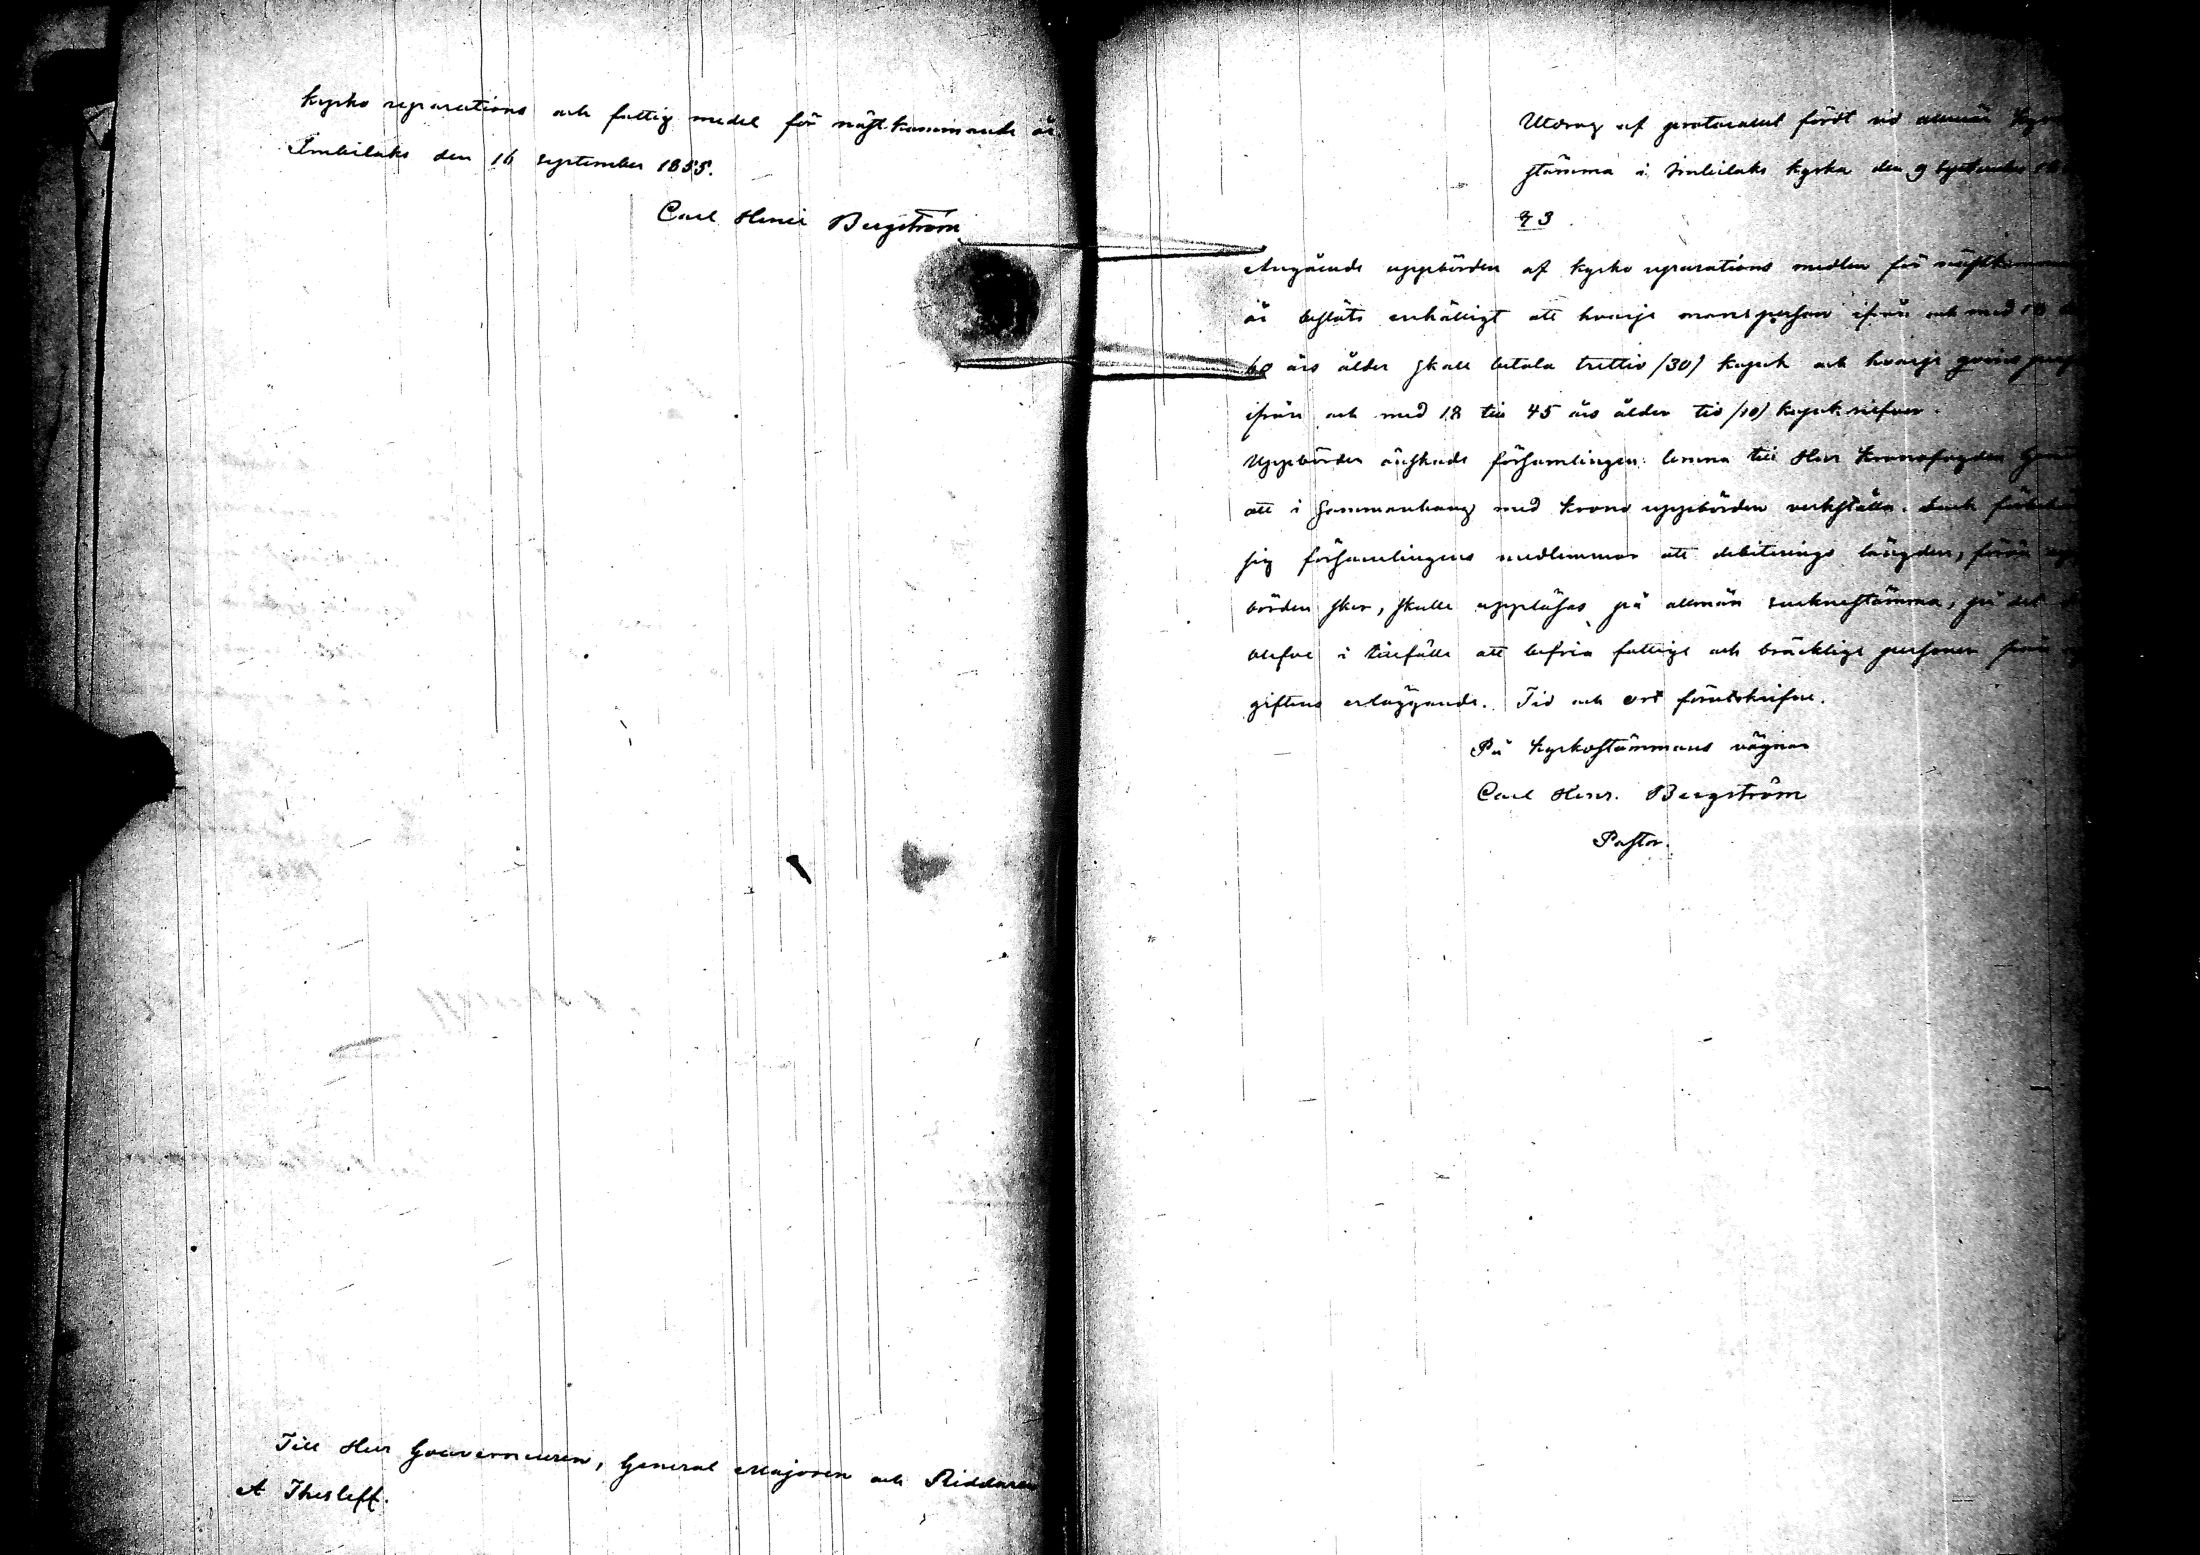 kyrko reparations och fattig medel för nästkommande år
Imbilaks den 16 september 1855.
Carl Henric Bergström
Till Herr Gouverneuren, General Majoren och Riddaren
A Thesleff.
Utdrag af protocollet fördt vid allmän
stämma i Imbilaks kyrka den 9 September
§ 3
Angående uppbörden af kyrko reparations medlen för
år beslöts enhälligt att hvarje mansperson ifrån och med 18
60 års ålder skall betala trettio /30/ kopek och hvarje qvins
ifrån och med 18 till 45 års ålder tio /10/ kopek silfver.
Uppbörden önskade församlingen lemna till Herr Kronofogden
att i sammanhang med krono uppbörden verkställa.
sig församlingens medlemmar att debiterings längden, förän
börden sker, skulle uppläsas på allmän socknestämma, på det
blefve i tillfälle att befria fattige och bräcklige personer från
giftens erläggande. Tid och ort förutskrifne.
På Kyrkostämmans vägnar
Carl Henr. Bergström
Pastor.